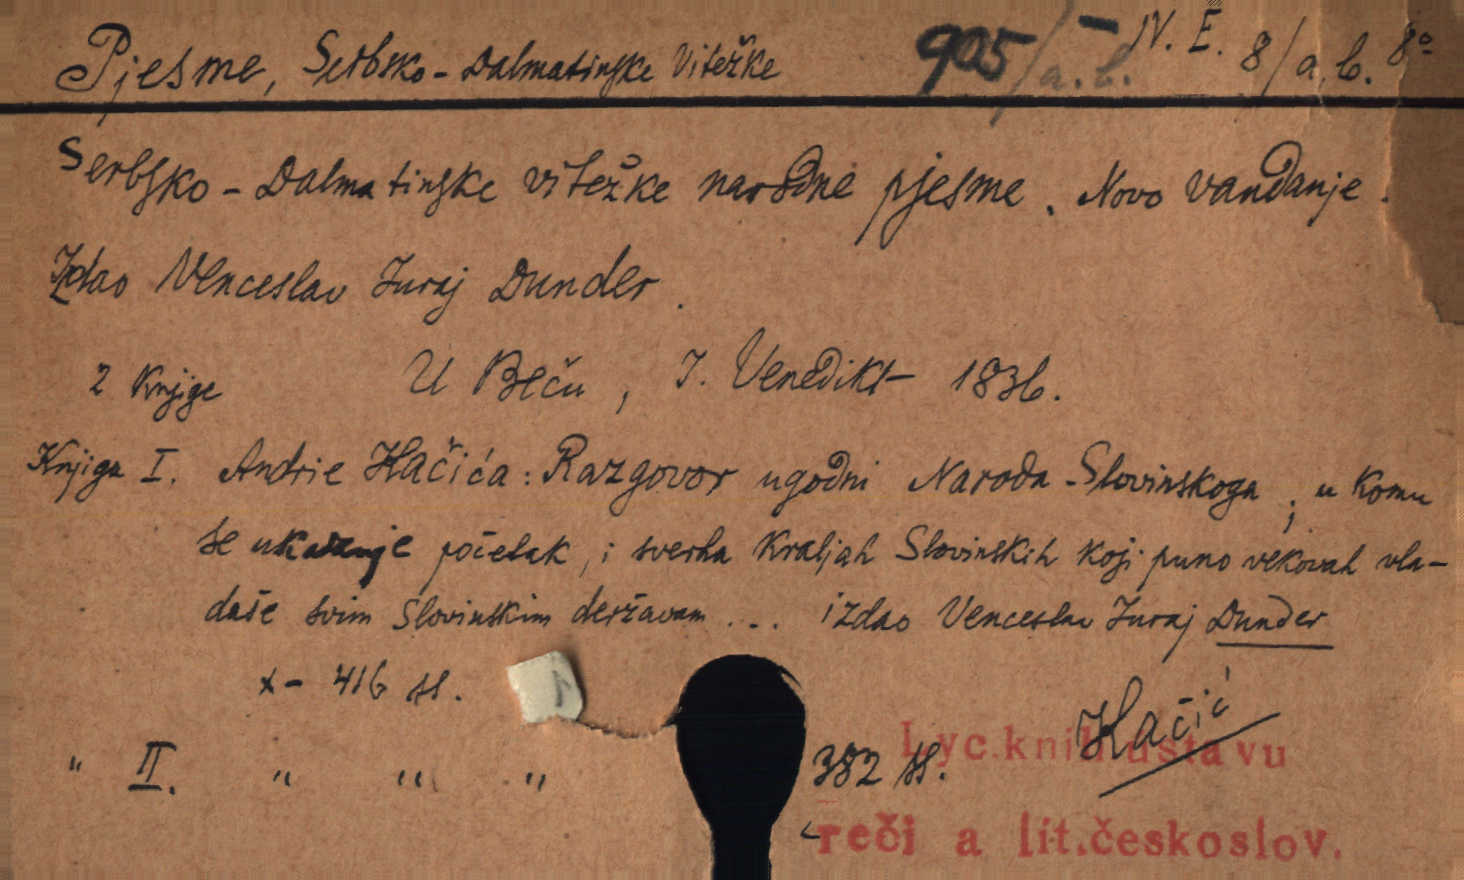 Pjesme, Serbsko-Dalmatinske Vitežke 905/a.b. – IV. E. 8/a.b. 8°
Serbsko-Dalmatinske vitežke narodne pjesme. Novo vandanje.
Izdao Venceslav Juraj Dunder.
2 Knjige U Beču, J. Venedikt 1836.
Knjiga I. Andrie Kačića: Razgovor ugodni Naroda Slovinskoga; u komu
se ukazuje početak, i sverha Kraljah Slovinskih koji puno vekovah vla-
daše svim Slovinskim deržavam ... izdao Venceslav Juraj Dunder
x – 416 ss.
Kačić
" II. " " " 382 ss.
Lyc. knih. ústavu
řečí a lit. českoslov.